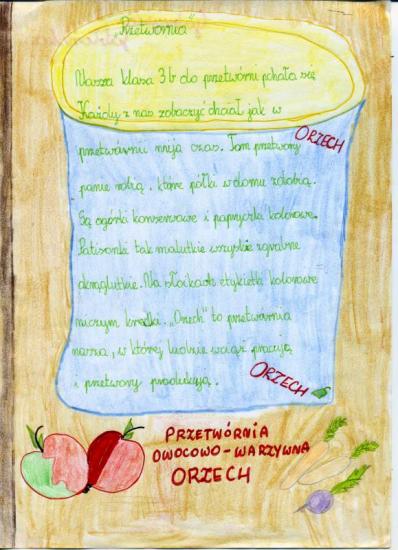 „Przetwornia”
Nasza klasa 3b do przetwórni pchała się
Każdy z nas zobaczyć chciał jak w
ORZECH
przetwórni mija czas. Tam przetwory
panie robią, które półki w domu zdobią.
Są ogórki konserwowe i papryczki kolorowe.
Patisonki tak malutkie wszystkie zgrabne
okrąglutkie. Na słoikach etykietki kolorowe
niczym kredki. „Orzech” to przetwórnia
nasza, w której ludzie wciąż pracują
i przetwory produkują.
ORZECH
PRZETWÓRNIA
OWOCOWO-WARZYWNA
ORZECH